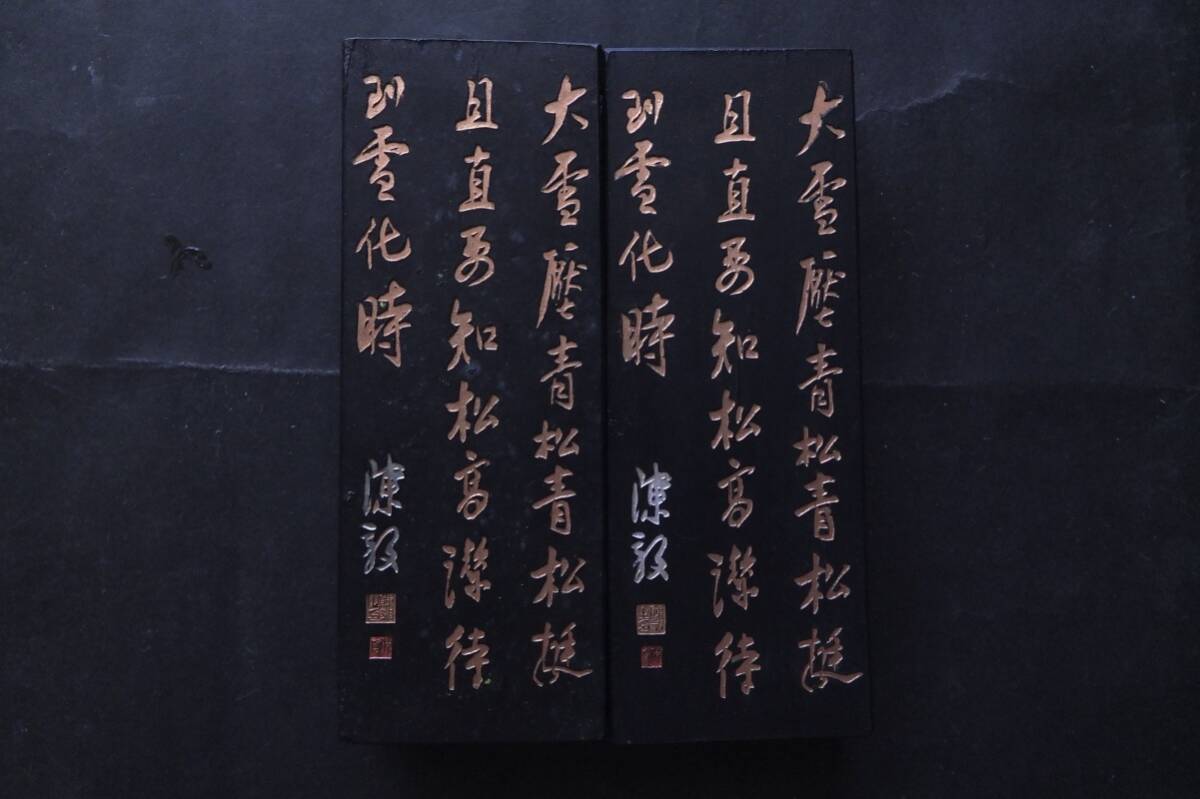 大雪壓青松青松挺
且直要知松高潔待
到雪化時
陳毅
大雪壓青松青松挺
且直要知松高潔待
到雪化時
陳毅